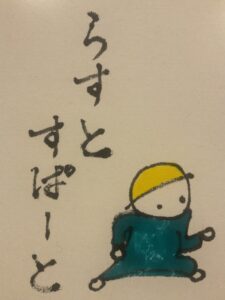 らすと
すぱーと